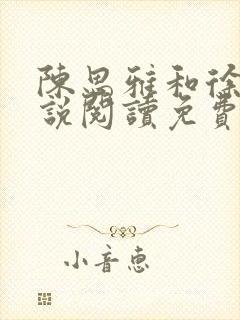 陳思雅和徐
說閱讀免費
小音惠